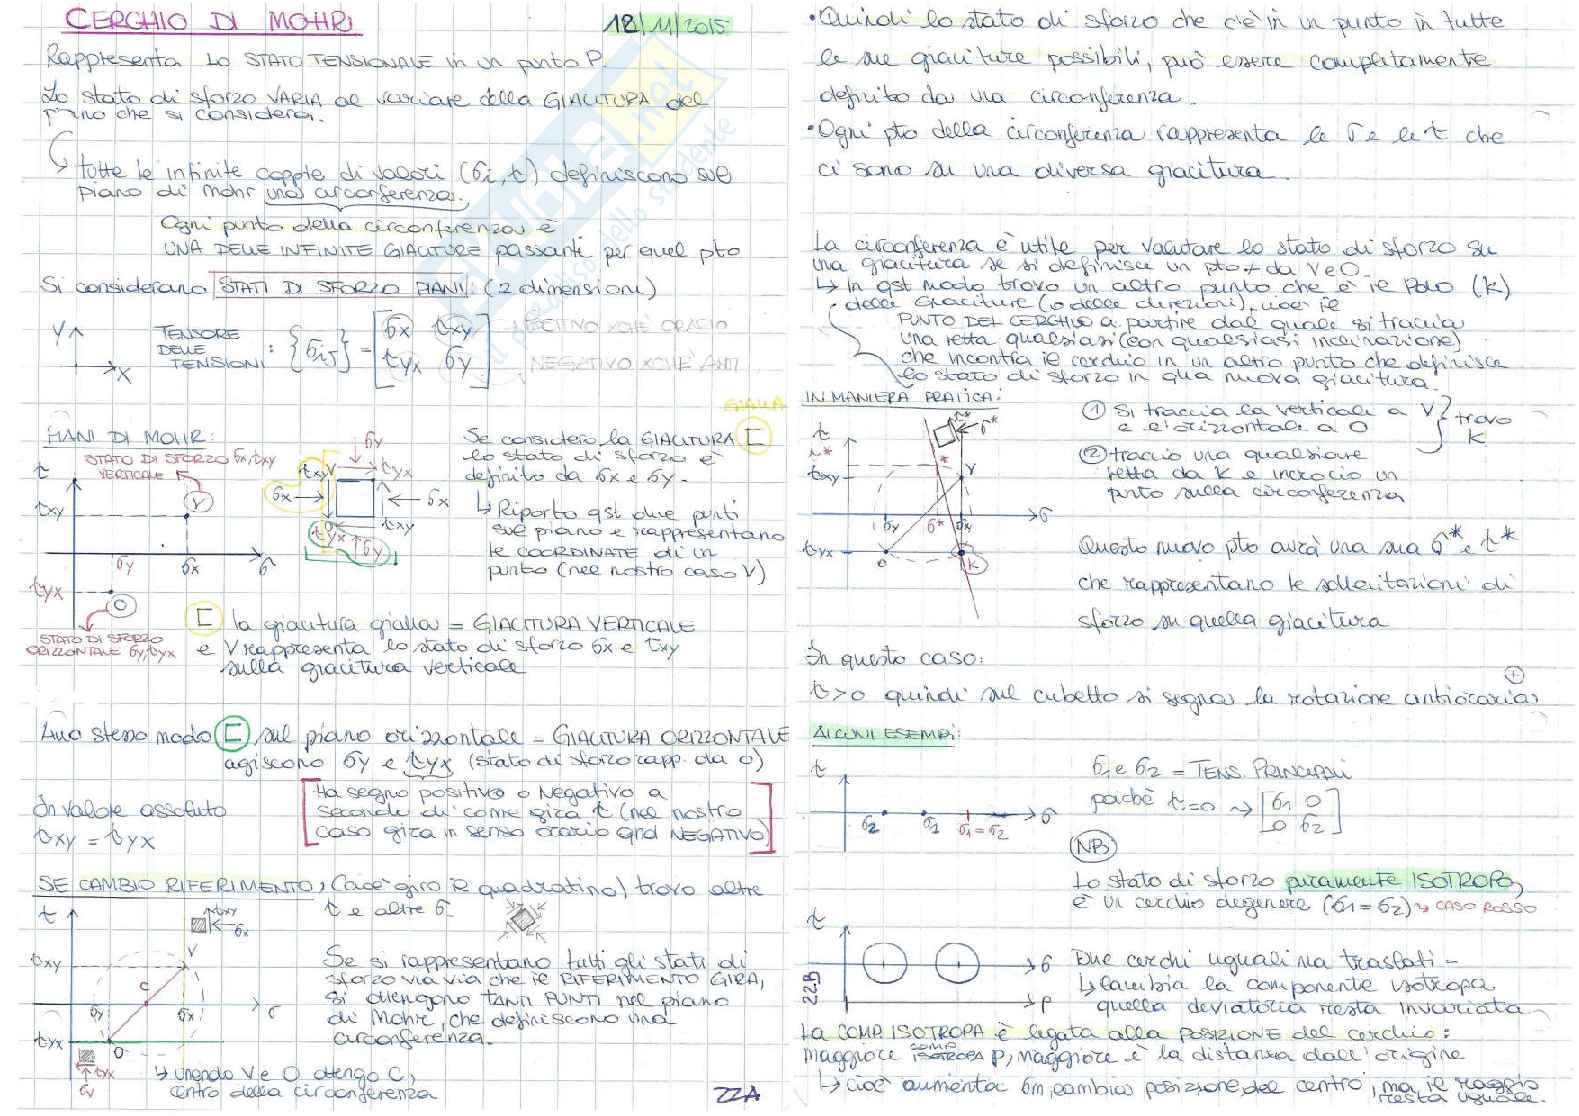 CERCHIO DI MOHR
12/11/2015
Rappresenta LO STATO TENSIONALE in un punto P.
Lo stato di sforzo VARIA al variare della GIACITURA del
piano che si considera.
↳ tutte le infinite coppie di valori (σi, τ) definiscono sul
piano di Mohr una circonferenza.
Ogni punto della circonferenza è
UNA DELLE INFINITE GIACITURE passanti per quel pto
Si considerano STATI DI SFORZO PIANI: (2 dimensioni)
Y
X
TENSORE
DELLE
TENSIONI
: {σij} = [σx τxy
τyx σy]
POSITIVO XCHÈ ORARIO
NEGATIVO XCHÈ ANTI
GIALLA
PIANI DI MOHR:
τ
STATO DI SFORZO σx, τxy
VERTICALE
V
τxy
σy
σx
σ
τyx
O
STATO DI SFORZO
ORIZZONTALE σy, τyx
σy
τxy V
τyx
σx
σx
τxy
τyx
σy
Se considero la GIACITURA [
lo stato di sforzo è
definito da σx e σy.
↳ Riporto qsti due punti
sul piano e rappresentano
le COORDINATE di un
punto (nel nostro caso V)
[ la giacitura gialla = GIACITURA VERTICALE
e V rappresenta lo stato di sforzo σx e τxy
sulla giacitura verticale
Allo stesso modo [ sul piano orizzontale = GIACITURA ORIZZONTALE
agiscono σy e τyx (stato di sforzo rapp. da O)
In valore assoluto
τxy = τyx
[Ha segno positivo o negativo a
seconda di come gira τ (nel nostro
caso gira in senso orario qnd NEGATIVO)]
SE CAMBIO RIFERIMENTO, (cioè giro il quadratino) trovo altre
τ e altre σ.
τ
τxy
σx
V
τxy
C
σy
σx
σ
τyx
O
τyx
σy
Se si rappresentano tutti gli stati di
sforzo via via che il RIFERIMENTO GIRA,
si ottengono TANTI PUNTI nel piano
di Mohr, che definiscono una
circonferenza.
↳ unendo V e O ottengo C,
centro della circonferenza
22A
• Quindi lo stato di sforzo che c'è in un punto in tutte
le sue giaciture possibili, può essere completamente
definito da una circonferenza.
• Ogni pto della circonferenza rappresenta le σ e le τ che
ci sono su una diversa giacitura.
La circonferenza è utile per valutare lo stato di sforzo su
una giacitura se si definisce un pto ≠ da V e O.
↳ In qst modo trovo un altro punto che è il POLO (K)
delle Giaciture (o delle direzioni), cioè il
PUNTO DEL CERCHIO a partire dal quale si traccia
una retta qualsiasi (con qualsiasi inclinazione)
che incontra il cerchio in un altro punto che definisce
lo stato di sforzo in qlla nuova giacitura.
IN MANIERA PRATICA:
τ
τ*
σ*
τ*
*
V
τxy
σy
σ*
σx
σ
τyx
O
K
① Si traccia la verticale a V
e l'orizzontale a O
} trovo
K
② traccio una qualsiasi
retta da K e incrocio un
punto sulla circonferenza
Questo nuovo pto avrà una sua σ* e τ*
che rappresentano le sollecitazioni di
sforzo su quella giacitura
In questo caso:
τ>0 quindi sul cubetto si segna la rotazione antioraria
+
ALCUNI ESEMPI:
τ
σ2
σ1
σ1=σ2
σ
σ1 e σ2 = TENS. PRINCIPALI
poichè τ=0 → [σ1 0
0 σ2]
NB
Lo stato di sforzo puramente ISOTROPO,
è un cerchio degenere (σ1=σ2) → CASO ROSSO
τ
σ
p
22B
Due cerchi uguali ma traslati -
↳ Cambia la componente isotropa
quella deviatorica resta invariata
La COMP. ISOTROPA è legata alla POSIZIONE del cerchio:
maggiore COMP. ISOTROPA p, maggiore è la distanza dall'origine
↳ cioè aumenta σm, cambia posizione del centro, ma il raggio
resta uguale.